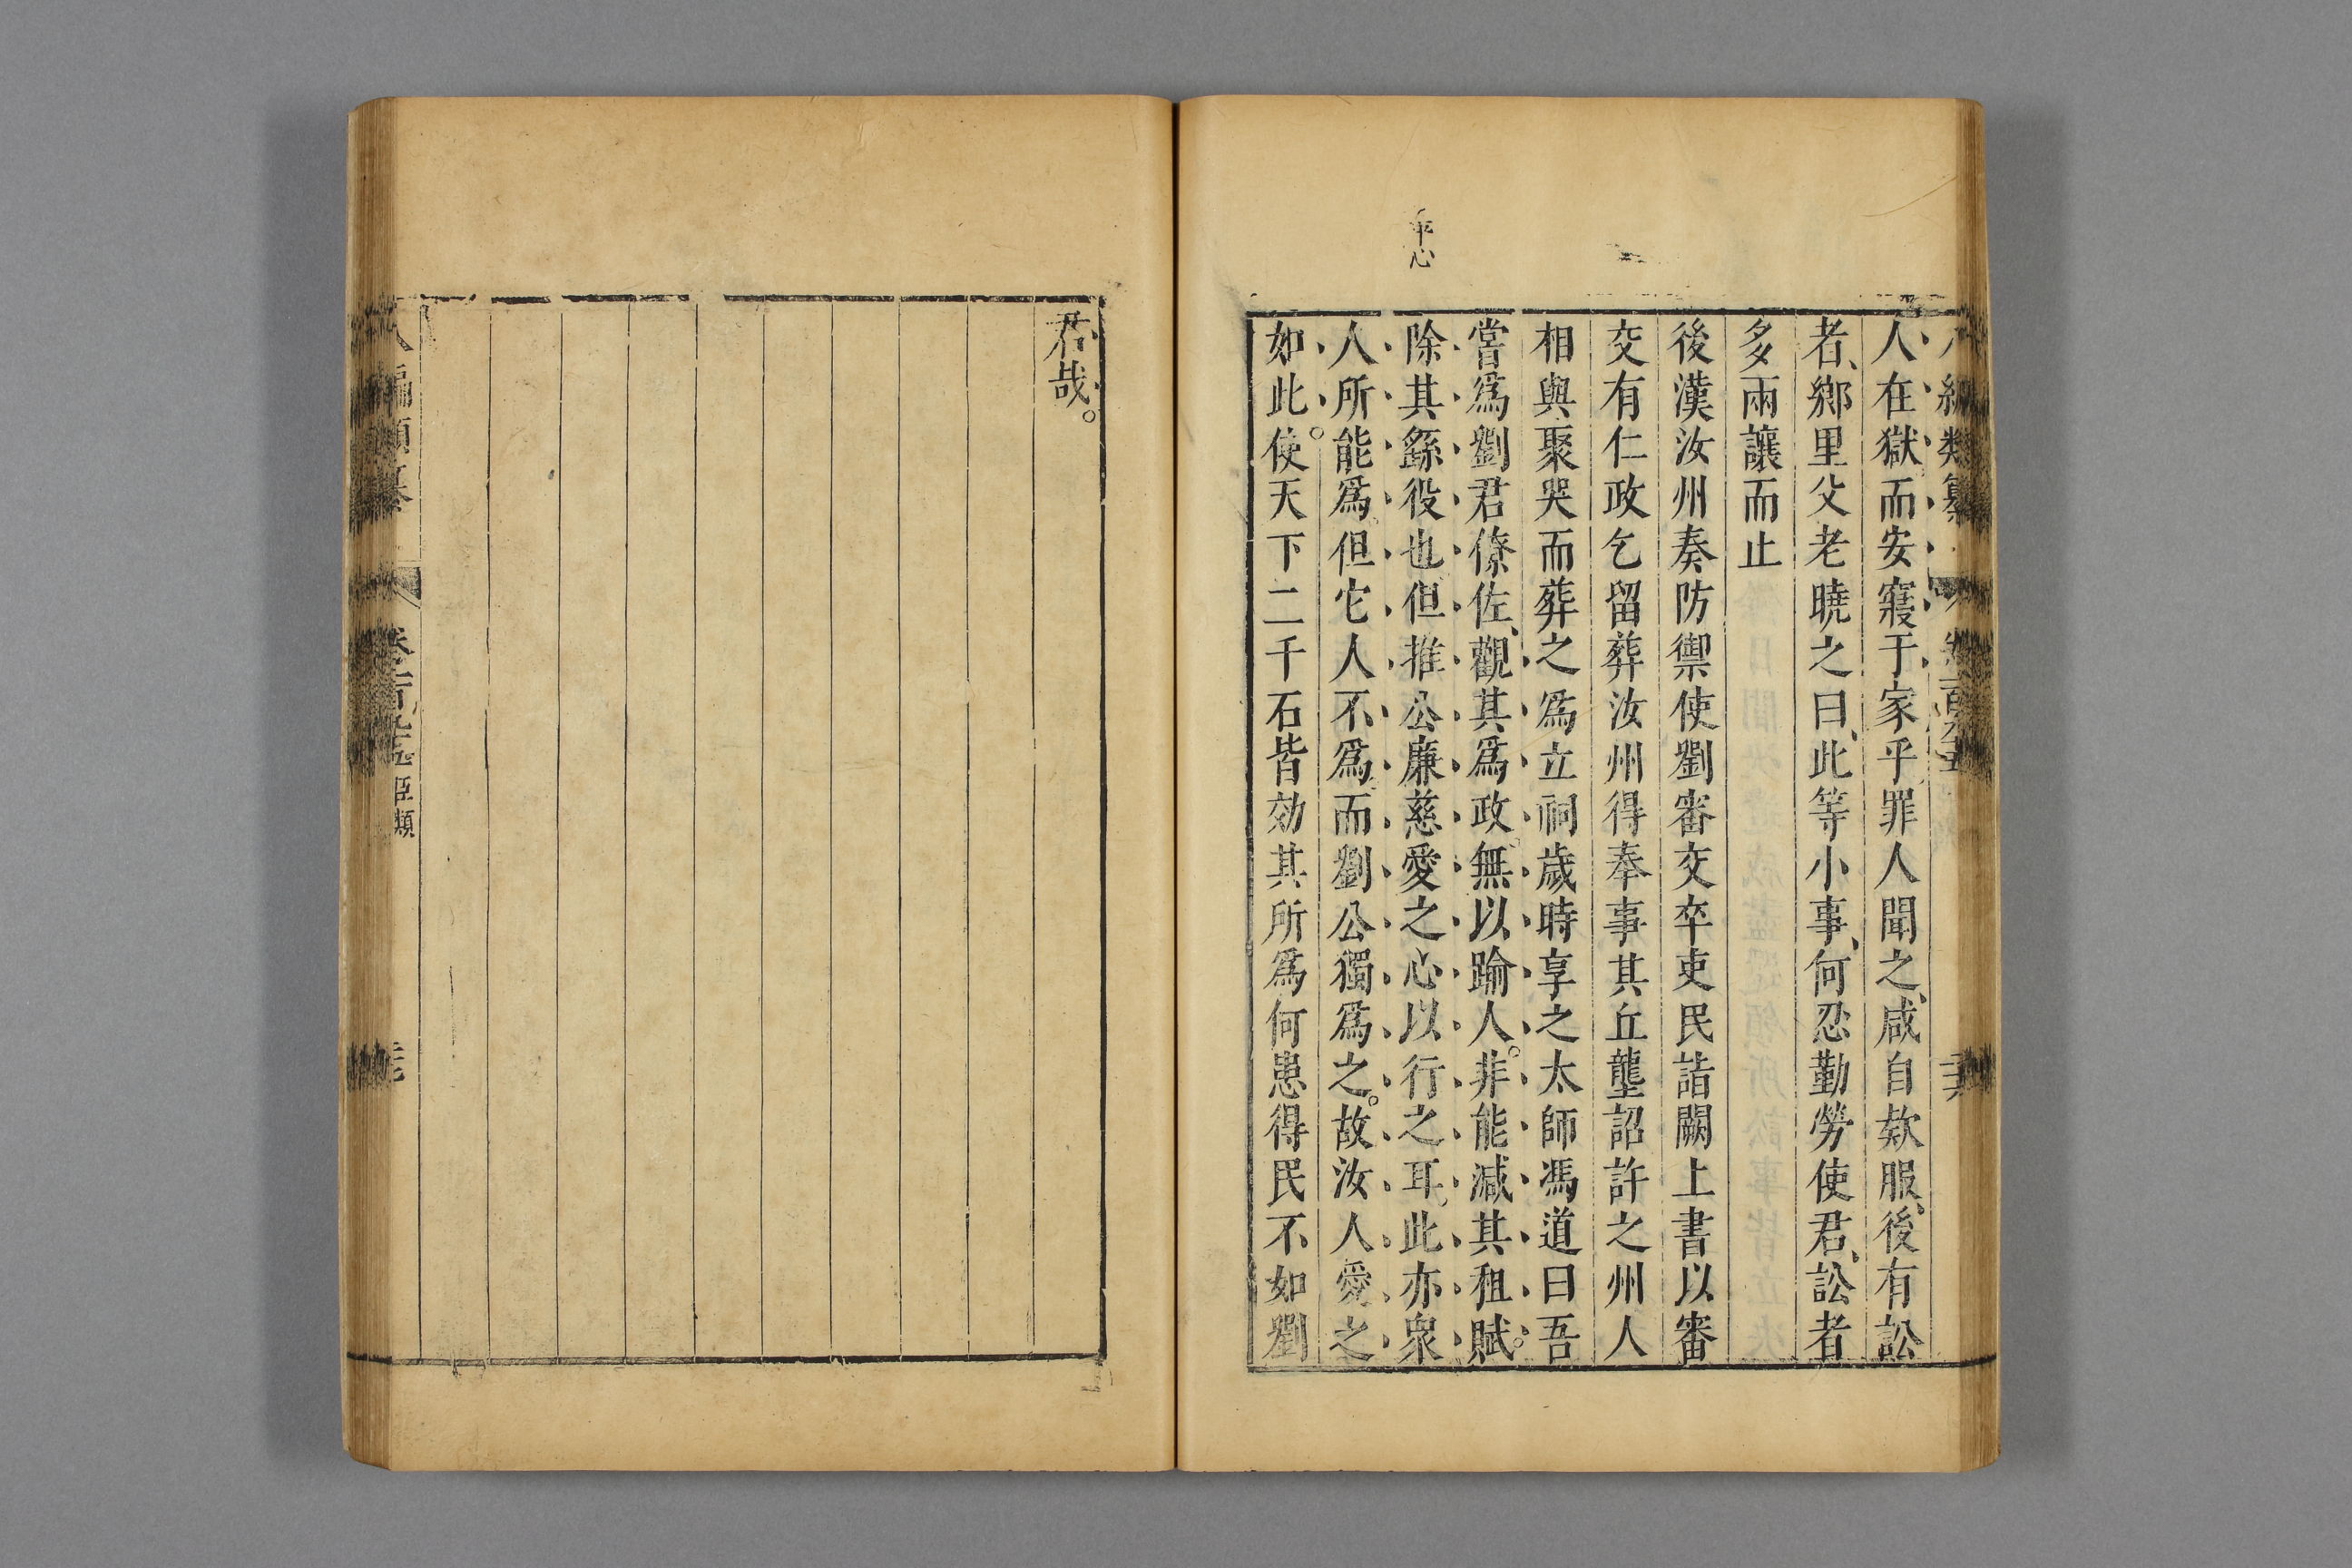 人在獄而安寢于家乎罪人聞之、咸自欵服、後有訟
者、鄉里父老曉之曰、此等小事、何忍勤勞使君、訟者
多兩讓而止
後漢汝州奏防禦使劉審交卒吏民詣闕上書以審
交有仁政乞留葬汝州得奉事其丘壟詔許之州人
相與聚哭而葬之爲立祠歲時享之太師馮道曰吾
嘗爲劉君僚佐、觀其爲政、無以踰人。非能减其租賦。
除其繇役也但推公廉慈愛之心以行之耳。此亦衆
人所能爲但它人不爲而劉公獨爲之。故汝人愛之
如此。使天下二千石皆効其所爲何患得民不如劉
君哉。